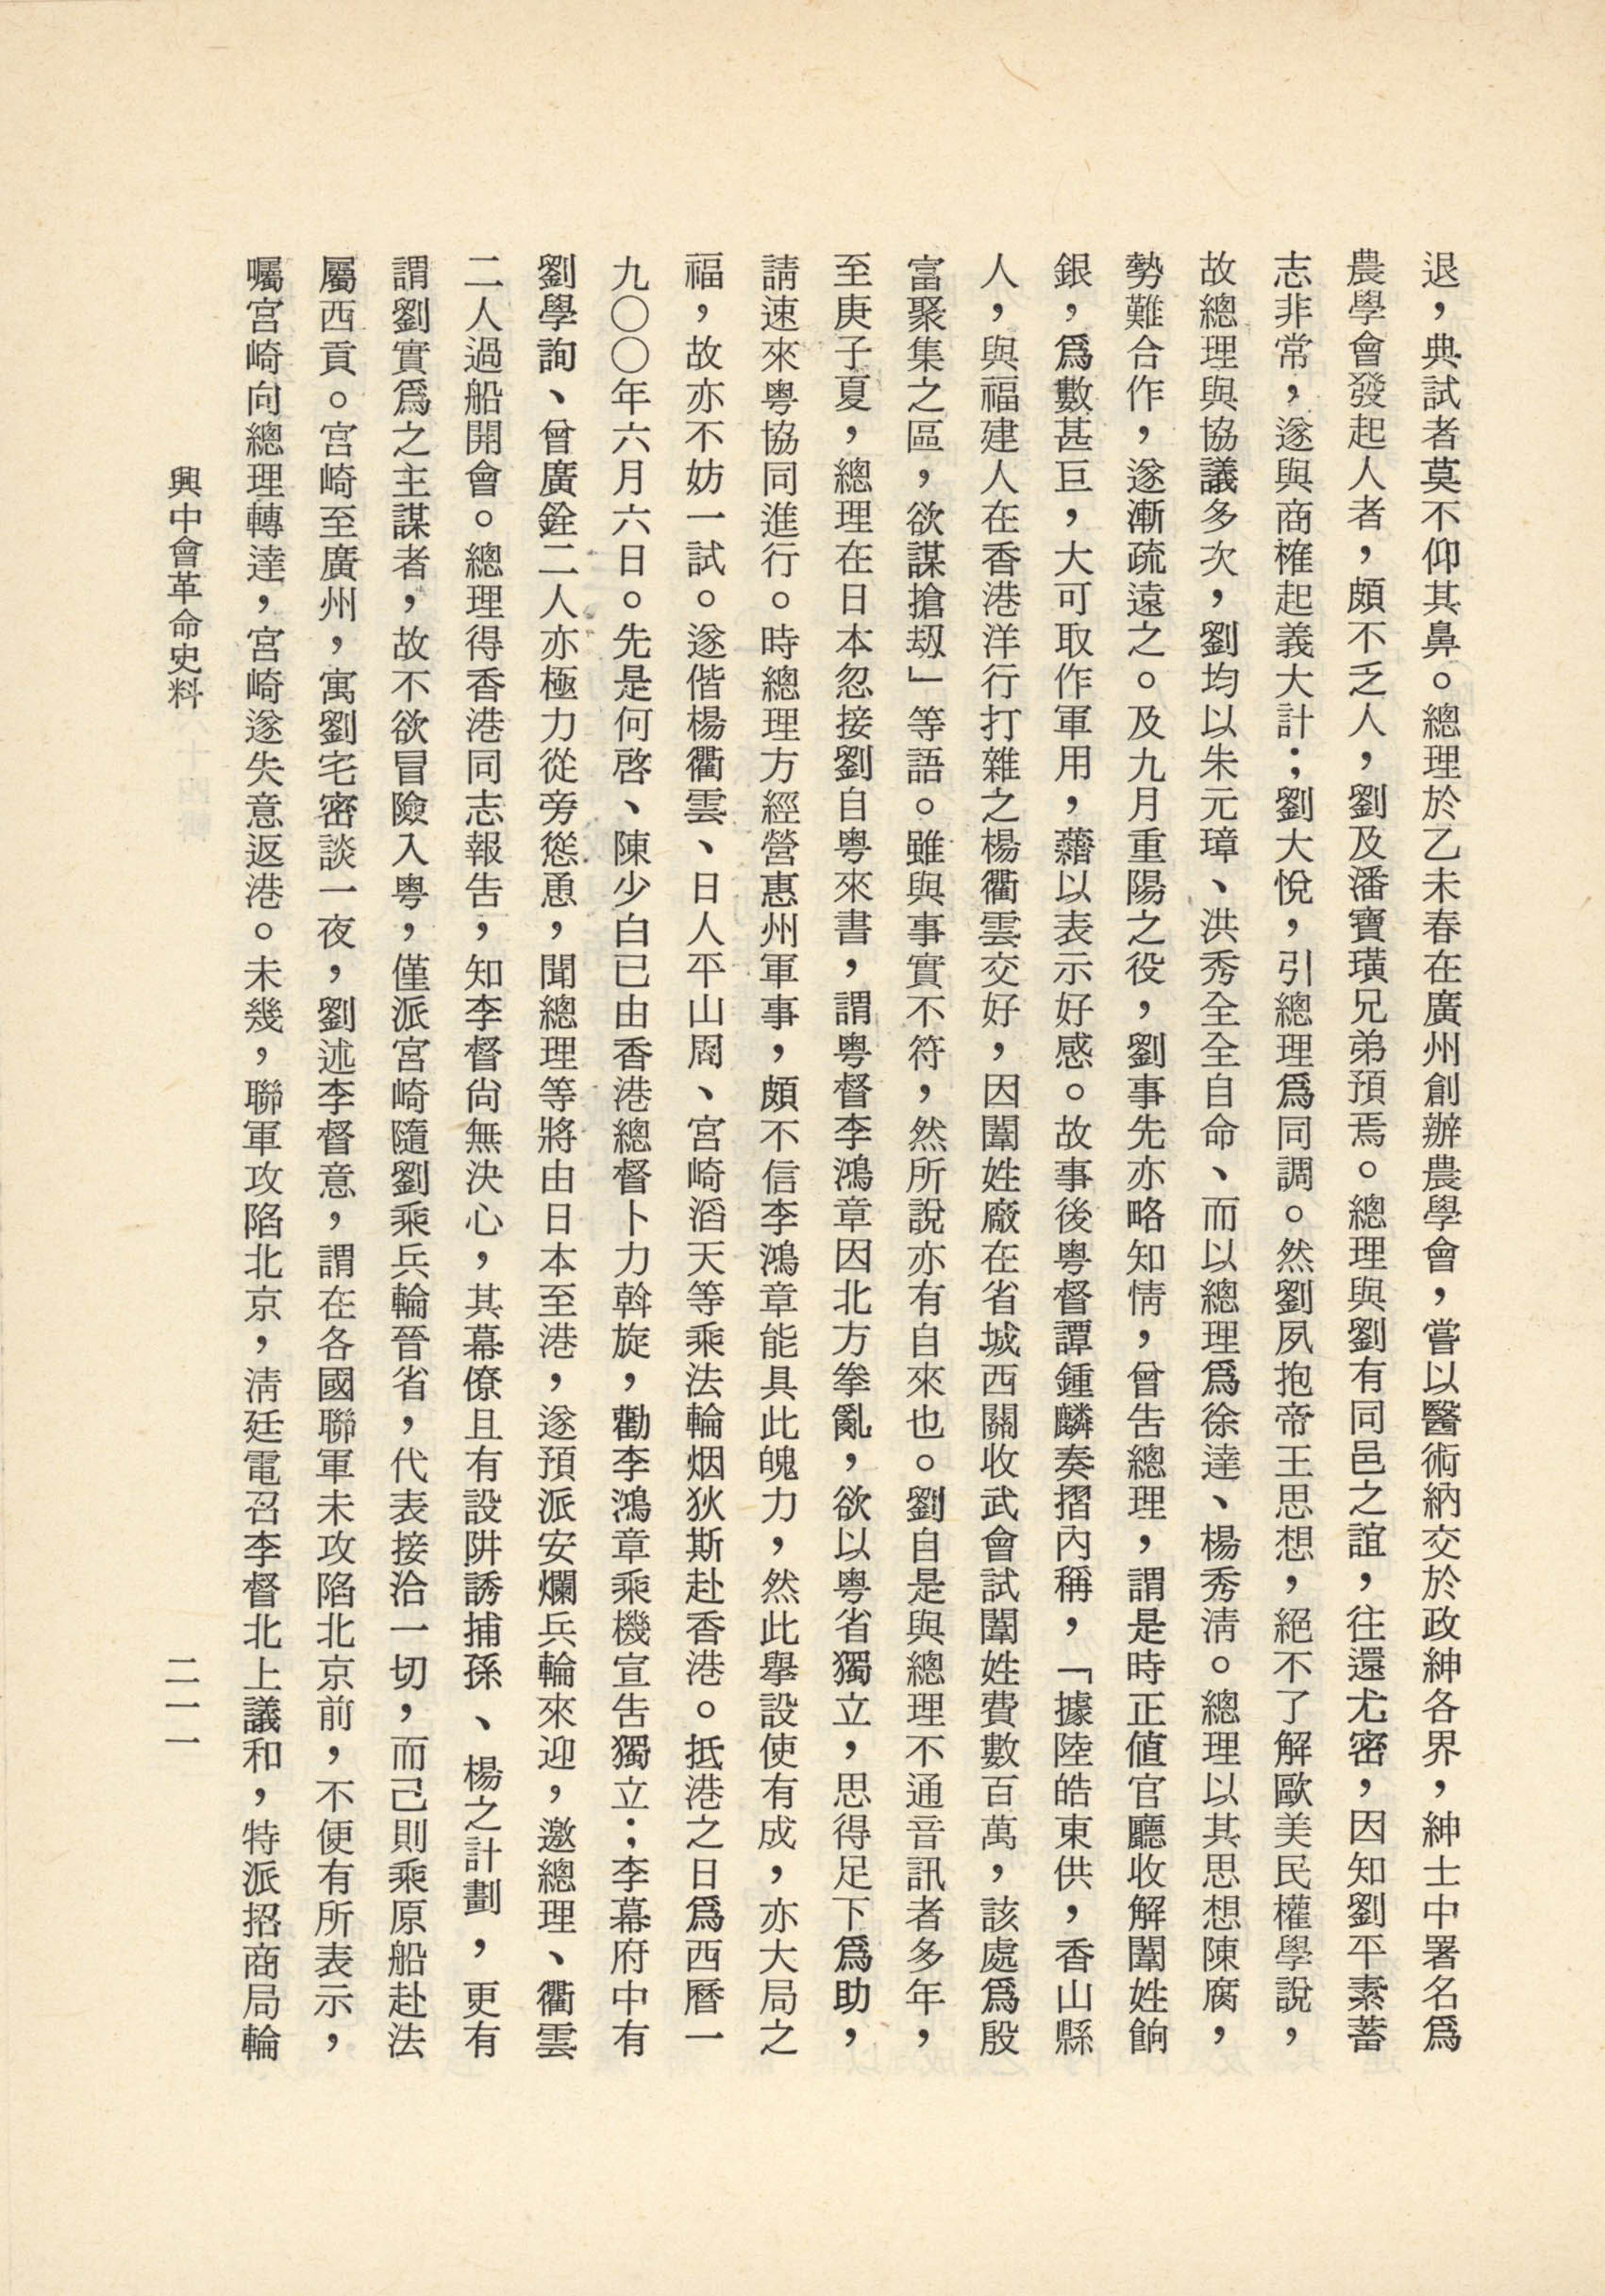 退，典試者莫不仰其鼻。總理於乙未春在廣州創辦農學會，嘗以醫術納交於政紳各界，紳士中署名爲
農學會發起人者，頗不乏人，劉及潘寶璜兄弟預焉。總理與劉有同邑之誼，往還尤密，因知劉平素蓄
志非常，遂與商榷起義大計；劉大悅，引總理爲同調。然劉夙抱帝王思想，絕不了解歐美民權學說，
故總理與協議多次，劉均以朱元璋、洪秀全全自命、而以總理爲徐達、楊秀淸。總理以其思想陳腐，
勢難合作，遂漸疏遠之。及九月重陽之役，劉事先亦略知情，曾告總理，謂是時正値官廳收解闈姓餉
銀，爲數甚巨，大可取作軍用，藉以表示好感。故事後粵督譚鍾麟奏摺內稱，「據陸皓東供，香山縣
人，與福建人在香港洋行打雜之楊衢雲交好，因闈姓廠在省城西關收武會試闈姓費數百萬，該處爲殷
富聚集之區，欲謀搶刼」等語。雖與事實不符，然所說亦有自來也。劉自是與總理不通音訊者多年，
至庚子夏，總理在日本忽接劉自粵來書，謂粵督李鴻章因北方拳亂，欲以粵省獨立，思得足下爲助，
請速來粵協同進行。時總理方經營惠州軍事，頗不信李鴻章能具此魄力，然此擧設使有成，亦大局之
福，故亦不妨一試。遂偕楊衢雲、日人平山周、宮崎滔天等乘法輪烟狄斯赴香港。抵港之日爲西曆一
九〇〇年六月六日。先是何啓、陳少白已由香港總督卜力斡旋，勸李鴻章乘機宣告獨立；李幕府中有
劉學詢、曾廣銓二人亦極力從旁慫恿，聞總理等將由日本至港，遂預派安爛兵輪來迎，邀總理、衢雲
二人過船開會。總理得香港同志報告，知李督尙無決心，其幕僚且有設阱誘捕孫、楊之計劃，更有
謂劉實爲之主謀者，故不欲冒險入粵，僅派宮崎隨劉乘兵輪晉省，代表接洽一切，而己則乘原船赴法
屬西貢。宮崎至廣州，寓劉宅密談一夜，劉述李督意，謂在各國聯軍未攻陷北京前，不便有所表示，
囑宮崎向總理轉達，宮崎遂失意返港。未幾，聯軍攻陷北京，淸廷電召李督北上議和，特派招商局輪
興中會革命史料
二一一